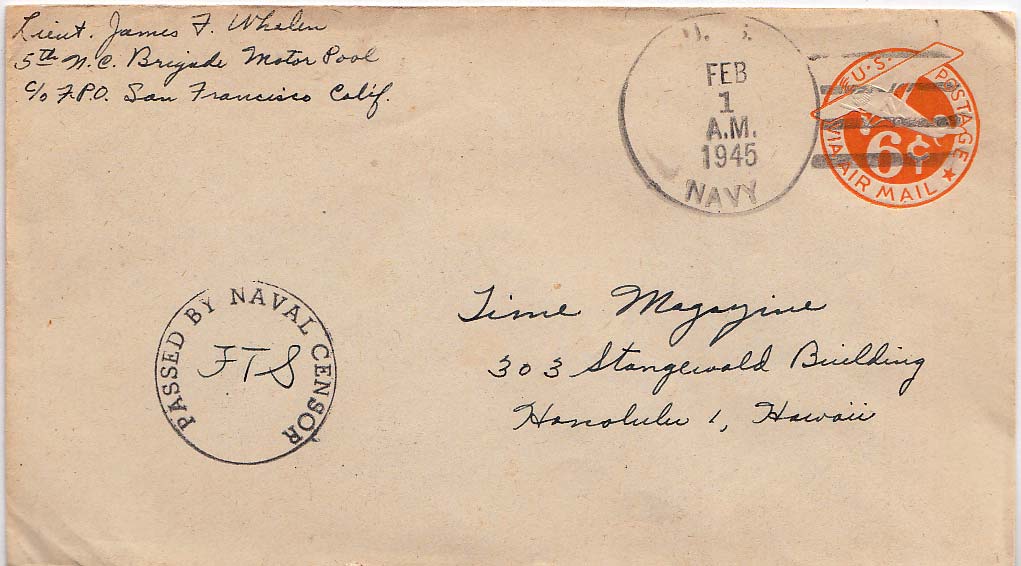 Lieut. James F. Whalen
5th N.C. Brigade Motor Pool
c/o F.P.O. San Francisco Calif.
U. S.
FEB
1
A.M.
1945
NAVY
U.S. POSTAGE
6¢
VIA AIR MAIL
PASSED BY NAVAL CENSOR
FTS
Time Magazine
303 Stangewald Building
Honolulu 1, Hawaii